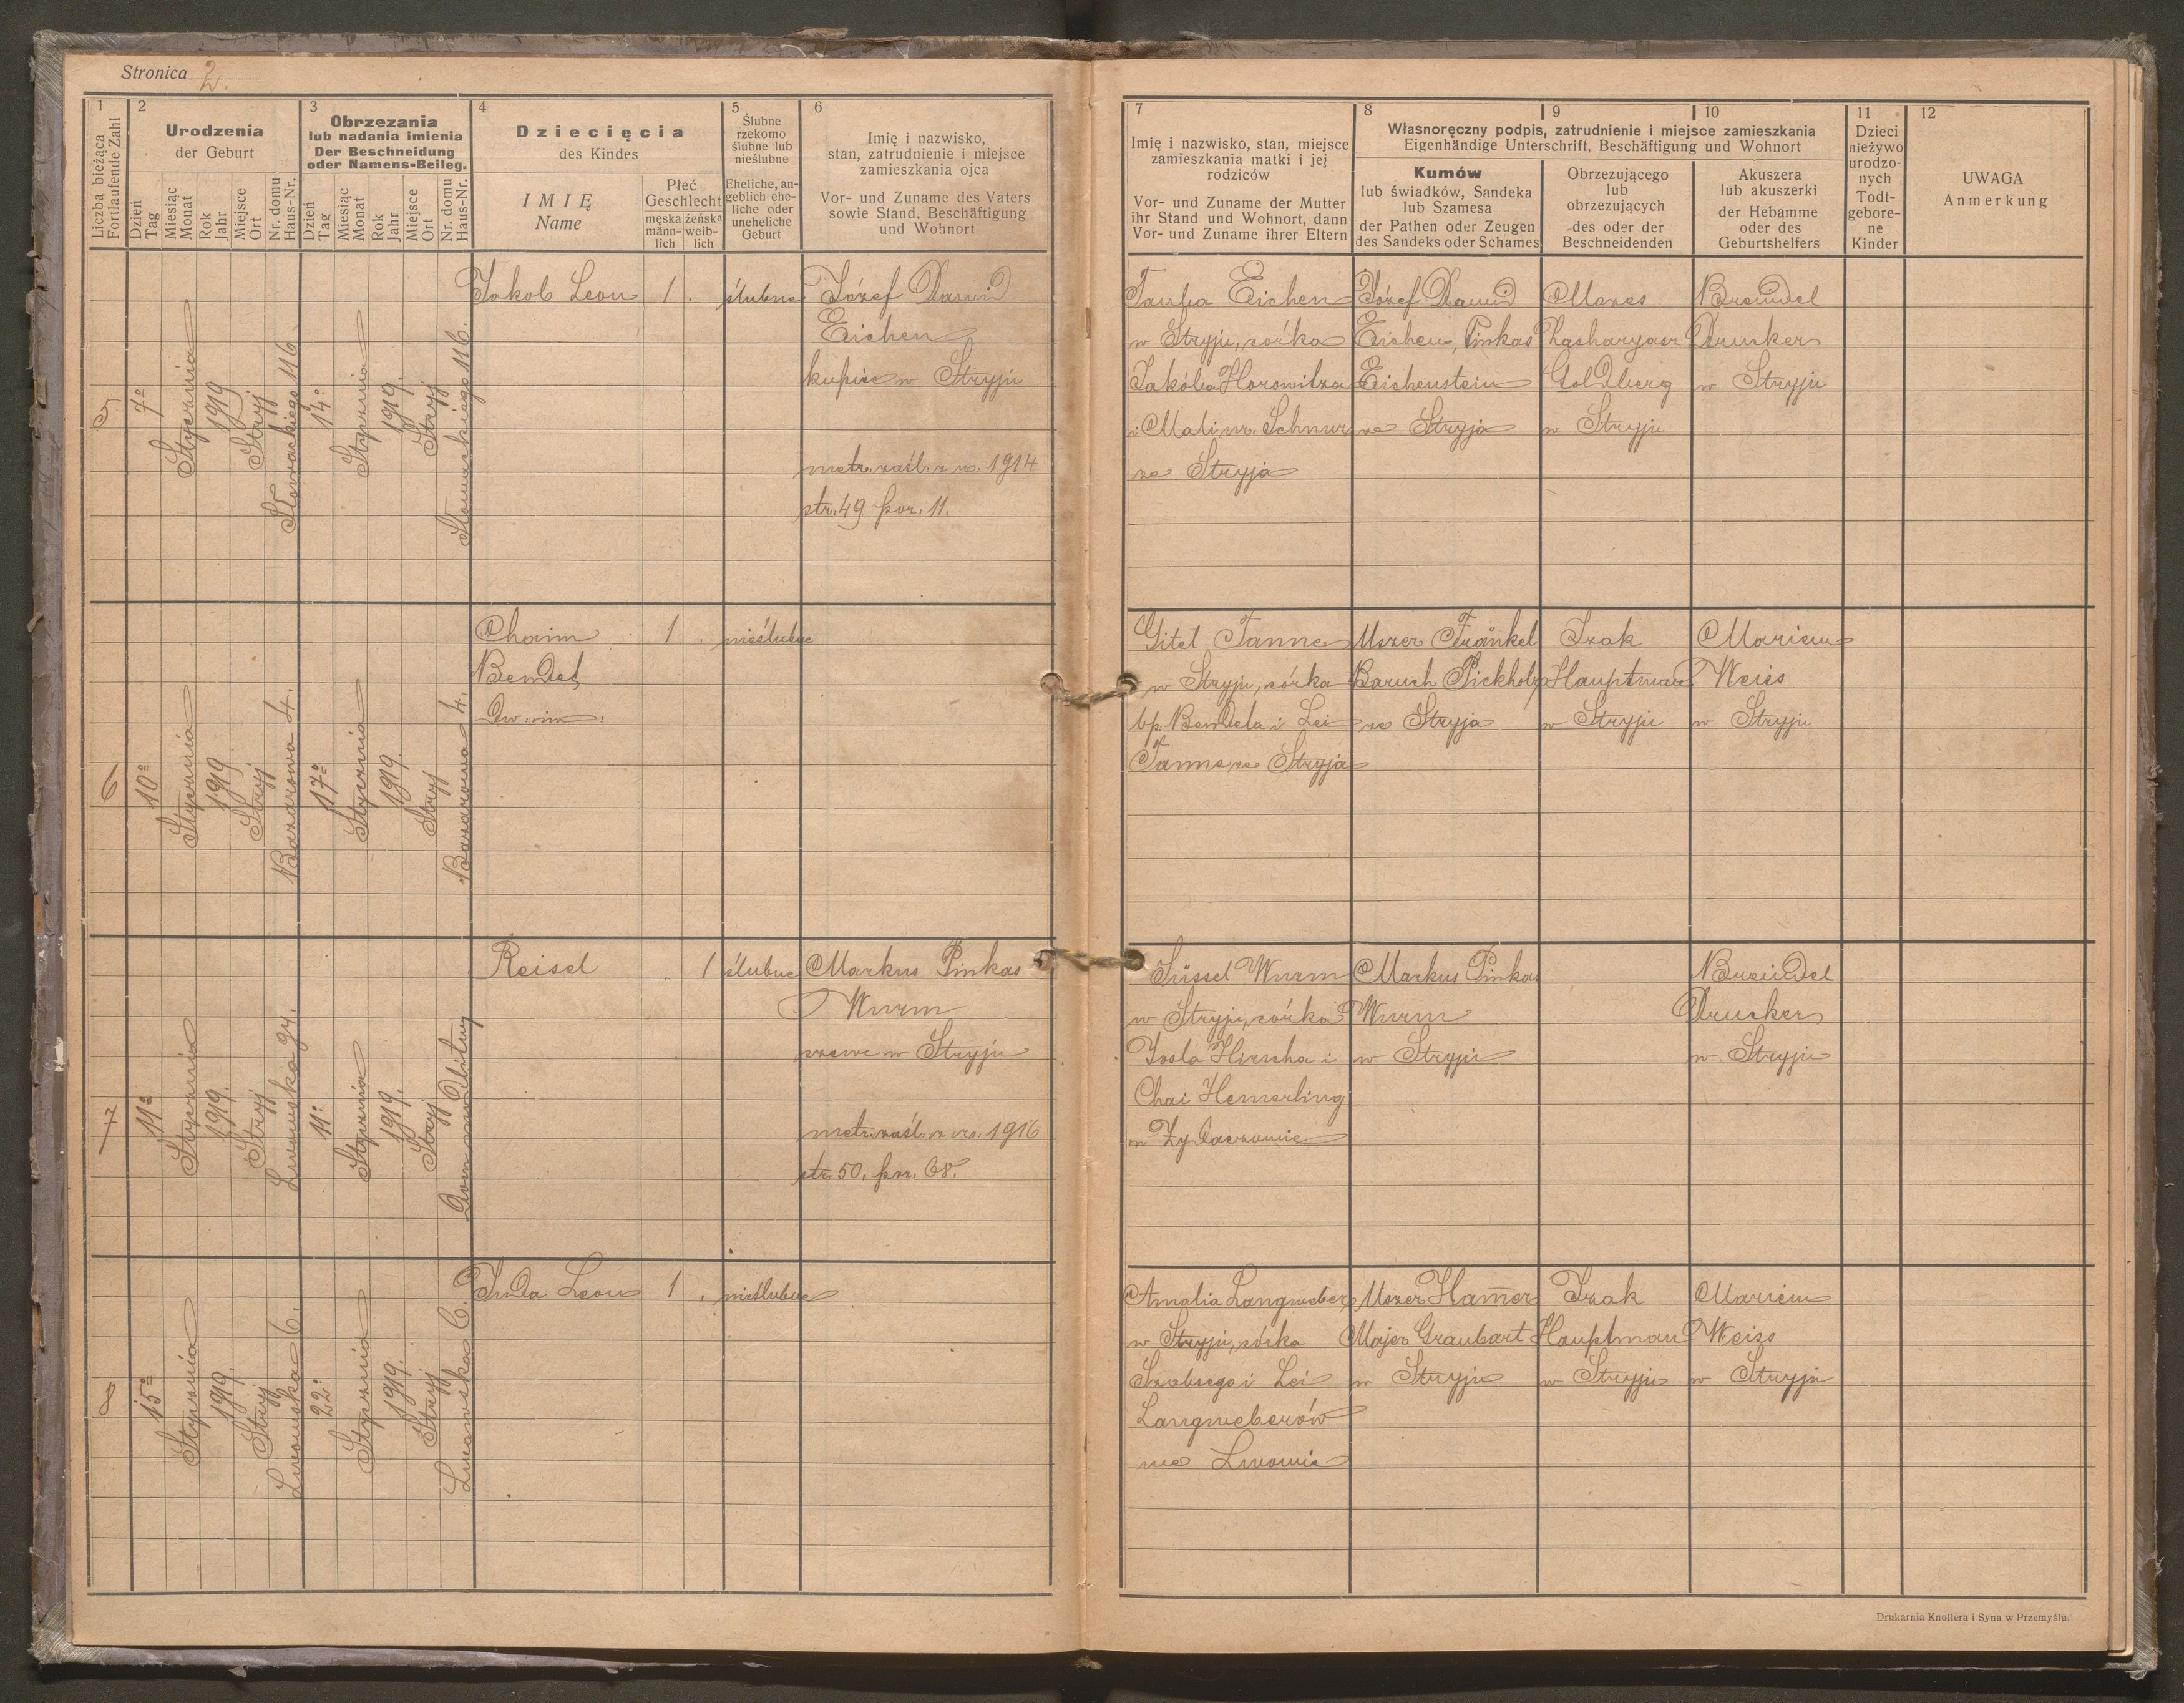 Stronica 2.
1
Liczba bieżąca
Fortlaufende Zahl
2
Urodzenia
der Geburt
Dzień
Tag
Miesiąc
Monat
Rok
Jahr
Miejsce
Ort
Nr. domu
Haus-Nr.
3
Obrzezania
lub nadania imienia
Der Beschneidung
oder Namens-Beileg.
Dzień
Tag
Miesiąc
Monat
Rok
Jahr
Miejsce
Ort
Nr. domu
Haus-Nr.
4
Dziecięcia
des Kindes
IMIĘ
Name
Płeć
Geschlecht
męska
männ-
lich
żeńska
weib-
lich
5
Ślubne
rzekomo
ślubne lub
nieślubne
Eheliche, an-
geblich ehe-
liche oder
uneheliche
Geburt
6
Imię i nazwisko,
stan, zatrudnienie i miejsce
zamieszkania ojca
Vor- und Zuname des Vaters
sowie Stand, Beschäftigung
und Wohnort
7
Imię i nazwisko, stan, miejsce
zamieszkania matki i jej
rodziców
Vor- und Zuname der Mutter
ihr Stand und Wohnort, dann
Vor- und Zuname ihrer Eltern
8
9
10
Własnoręczny podpis, zatrudnienie i miejsce zamieszkania
Eigenhändige Unterschrift, Beschäftigung und Wohnort
Kumów
lub świadków, Sandeka
lub Szamesa
der Pathen oder Zeugen
des Sandeks oder Schames
Obrzezującego
lub
obrzezujących
des oder der
Beschneidenden
Akuszera
lub akuszerki
der Hebamme
oder des
Geburtshelfers
11
Dzieci
nieżywo
urodzo-
nych
Todt-
gebore-
ne
Kinder
12
UWAGA
Anmerkung
5
7º
Stycznia
1919
Stryj
Słowackiego 116
14º
Stycznia
1919.
Stryj
Słowackiego 116.
Jakob Leon
1 .
ślubne
Józef Dawid
Eichen
kupiec w Stryju
metr. zaśl. z r. 1914
str. 49 poz. 11.
Tauba Eichen
w Stryju, córka
Jakóba Horowitza
i Mali ur. Schnur
ze Stryja
Józef Dawid
Eichen, Pinkas
Eichenstein
ze Stryja
Moses
Zacharyasz
Goldberg
w Stryju
Breindel
Drucker
w Stryju
6
10º
Stycznia
1919
Stryj
Bazarowa 4.
17º
Stycznia
1919.
Stryj
Bazarowa 4.
Chaim
Bendet
Dw. im.
1 .
nieślubne
Gitel Tanne
w Stryju, córka
bp. Bendeta i Lei
Tanne ze Stryja
Uszer Fränkel
Baruch Pickholz
ze Stryja
Izak
Hauptman
w Stryju
Mariem
Weiss
w Stryju
7
11º
Stycznia
1919.
Stryj
Lwowska 94.
11º
Stycznia
1919.
Stryj
Dom modlitwy
Reisel
. 1
ślubne
Markus Pinkas
Wurm
szewc w Stryju
metr. zaśl. z r. 1916
str. 50. poz. 68.
Süssel Wurm
w Stryju, córka
Josla Hirscha i
Chai Hemerling
w Żydaczowie
Markus Pinkas
Wurm
w Stryju
Breindel
Drucker
w Stryju
8
15º
Stycznia
1919.
Stryj
Lwowska 6.
22º
Stycznia
1919.
Stryj
Lwowska 6.
Juda Leon
1 .
nieślubne
Amalia Langweber
w Stryju, córka
Szabsego i Lei
Langweberów
we Lwowie
Uszer Ham̄er
Majer Graubart
w Stryju
Izak
Hauptman
w Stryju
Mariem
Weiss
w Stryju
Drukarnia Knollera i Syna w Przemyślu.